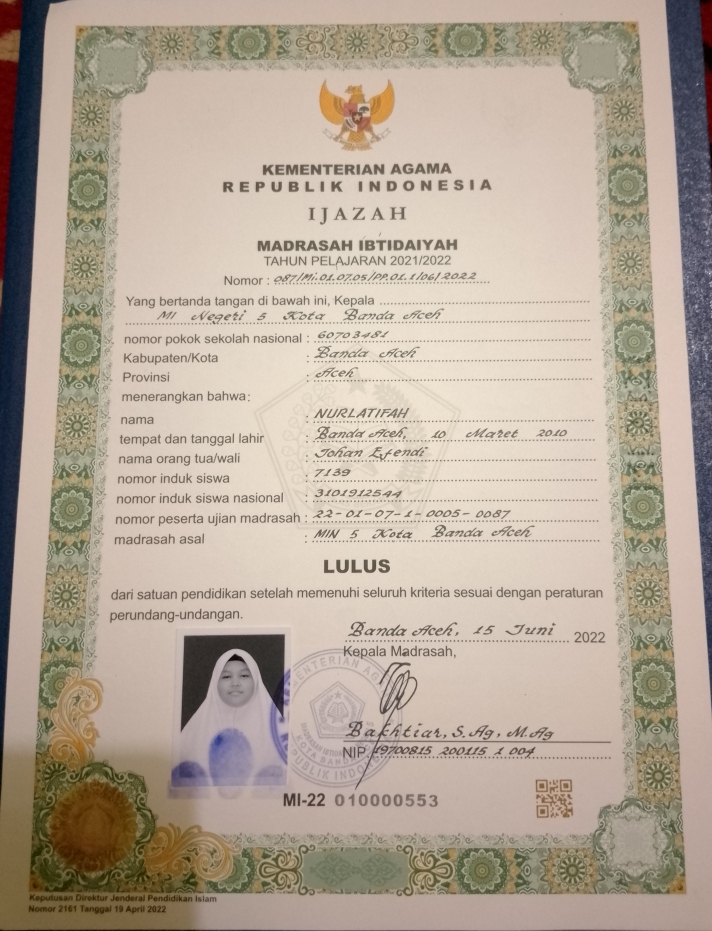 KEMENTERIAN AGAMA
REPUBLIK INDONESIA
IJAZAH
MADRASAH IBTIDAIYAH
TAHUN PELAJARAN 2021/2022
Nomor : 087/Mi.01.07.05/PP.01.1/06/2022
Yang bertanda tangan di bawah ini, Kepala
MI Negeri 5 Kota Banda Aceh
nomor pokok sekolah nasional : 60703481
Kabupaten/Kota : Banda Aceh
Provinsi : Aceh
menerangkan bahwa:
nama : NURLATIFAH
tempat dan tanggal lahir : Banda Aceh, 10 Maret 2010
nama orang tua/wali : Johan Efendi
nomor induk siswa : 7139
nomor induk siswa nasional : 3101912544
nomor peserta ujian madrasah : 22-01-07-1-0005-0087
madrasah asal : MIN 5 Kota Banda Aceh
LULUS
dari satuan pendidikan setelah memenuhi seluruh kriteria sesuai dengan peraturan
perundang-undangan.
Banda Aceh, 15 Juni 2022
Kepala Madrasah,
Bakhtiar, S.Ag, M.Ag
NIP 19700815 200115 1 004
MI-22 010000553
Keputusan Direktur Jenderal Pendidikan Islam
Nomor 2161 Tanggal 19 April 2022